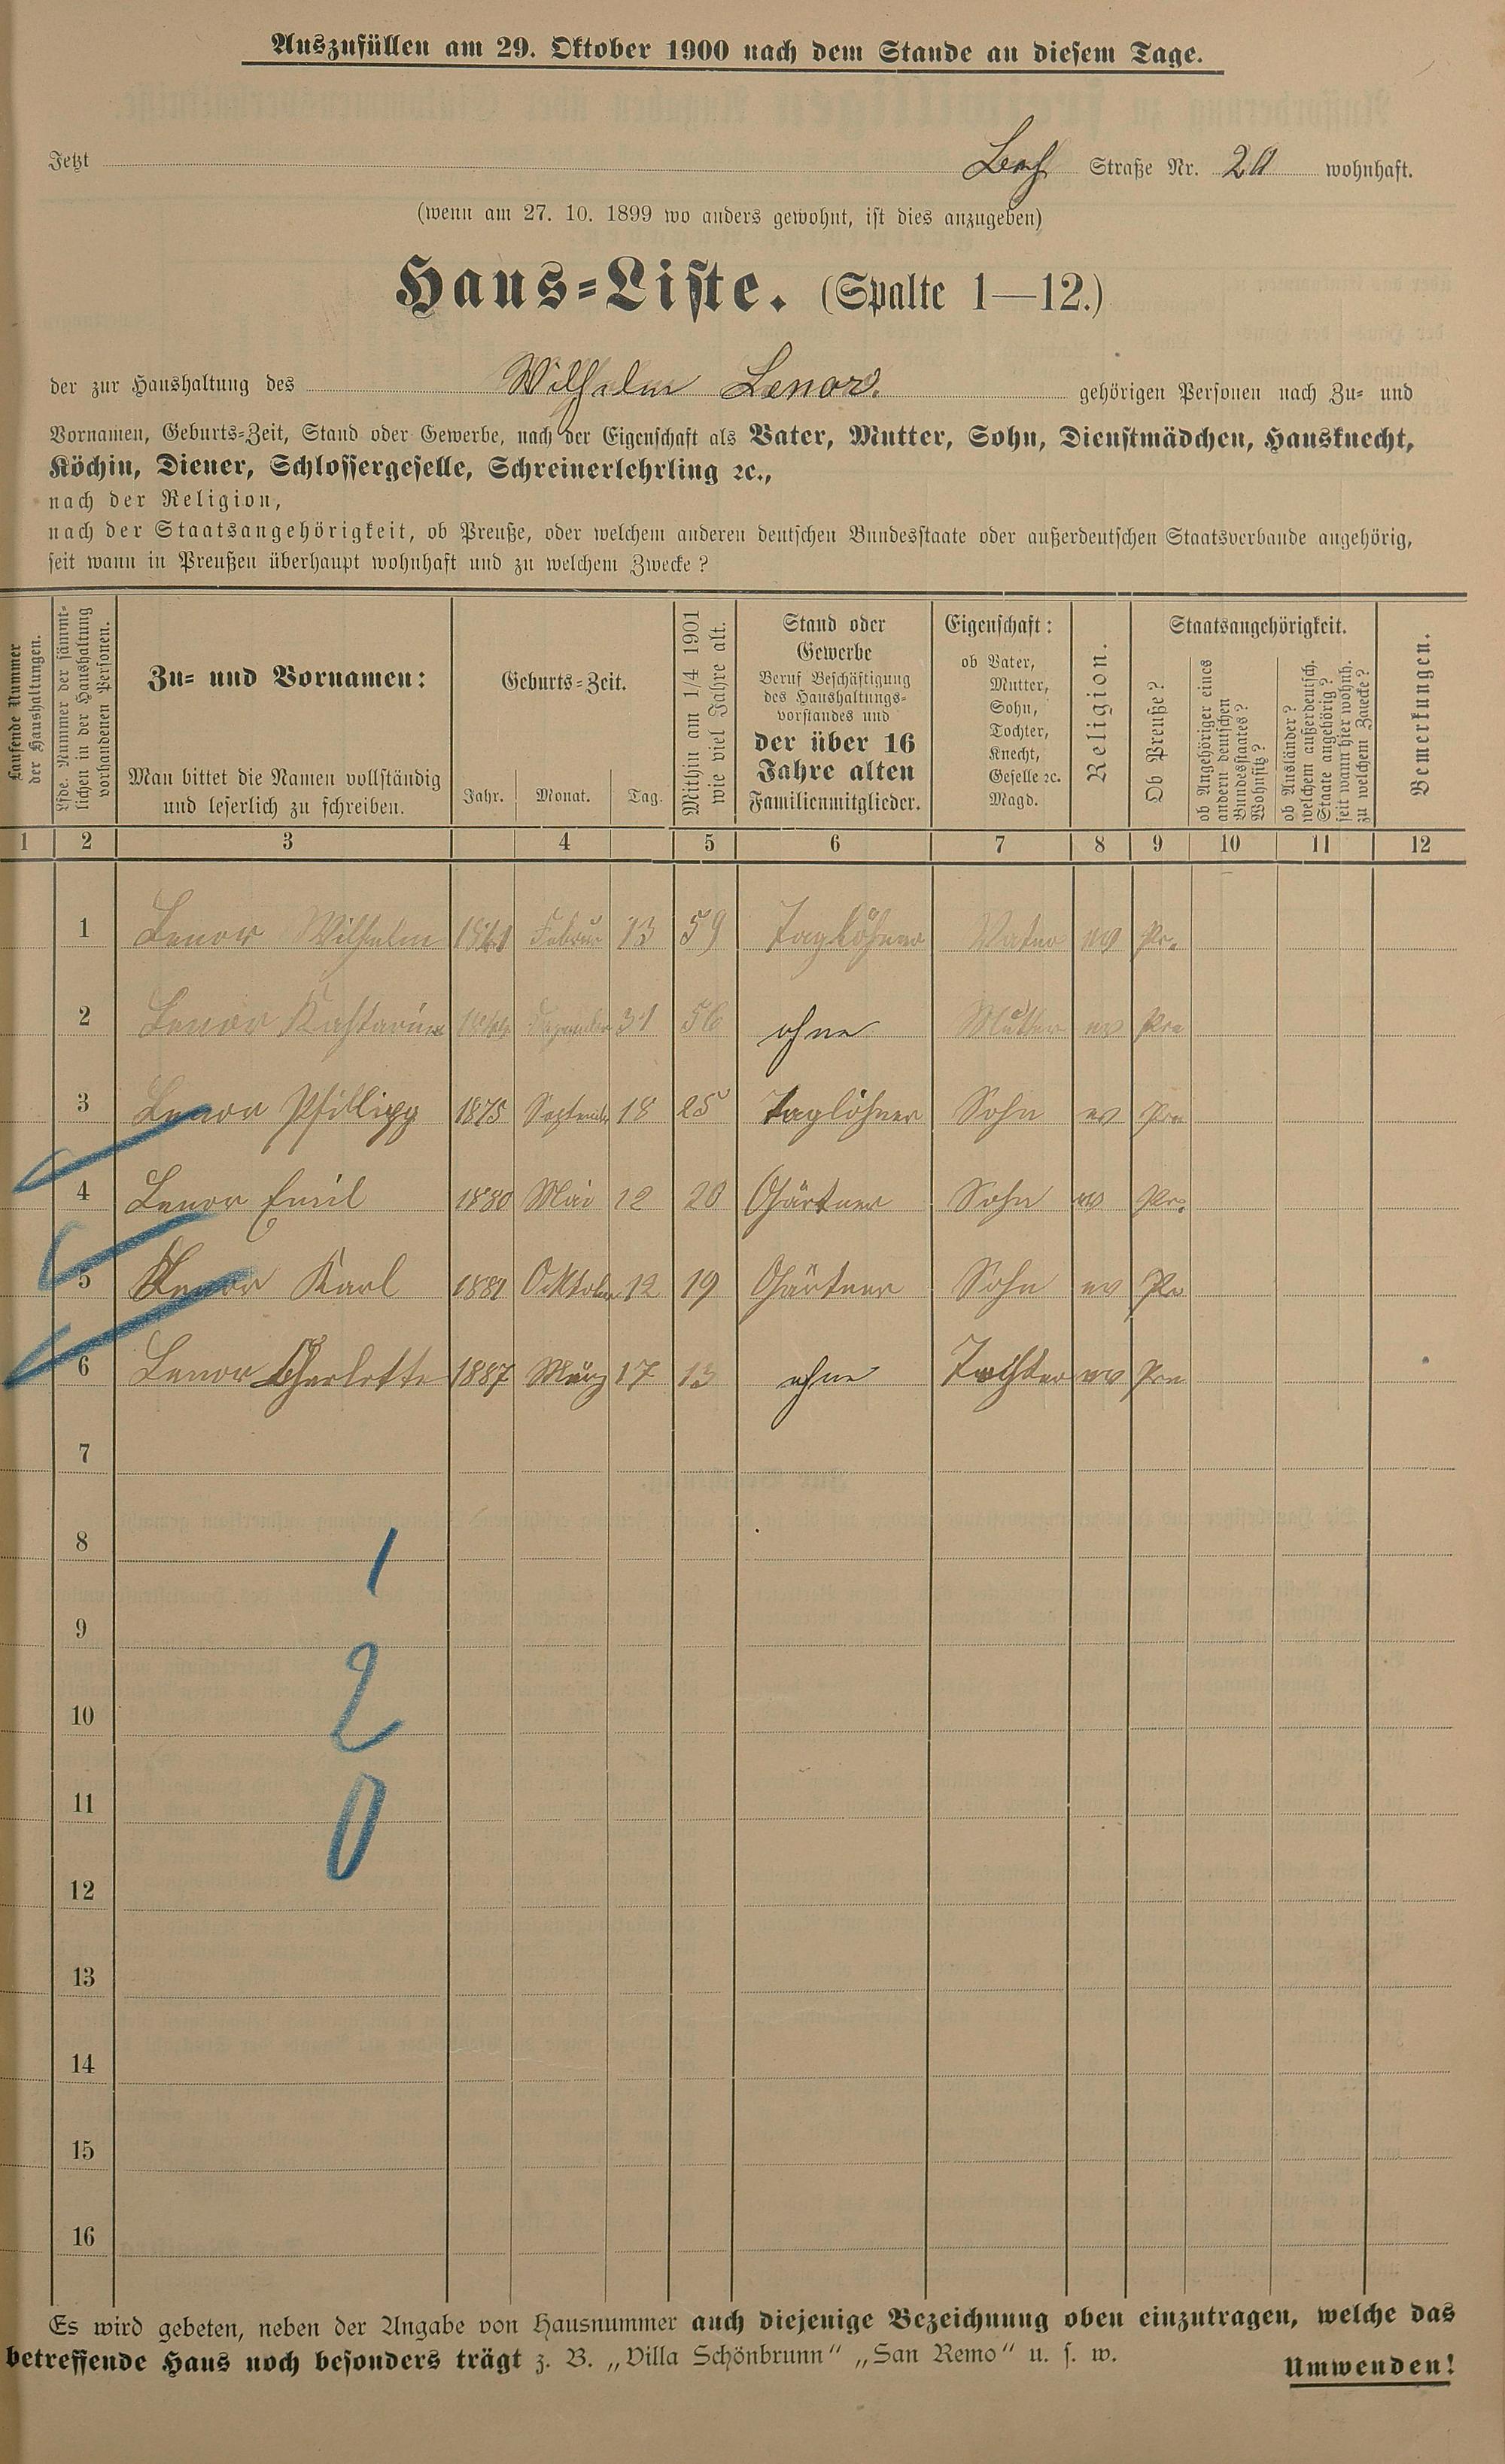 Auszufüllen am 29. Oktober 1900 nach dem Stande an diesem Tage.
Jetzt Straße Nr. 20 wohnhaft.
(wenn am 27. 10. 1899 wo anders gewohnt, ist dies anzugeben)
Haus-Liste. (Spalte 1—12.)
der zur Haushaltung des Wilhelm Lenor. gehörigen Personen nach Zu- und
Vornamen, Geburts-Zeit, Stand oder Gewerbe, nach der Eigenschaft als Vater, Mutter, Sohn, Dienstmädchen, Hausknecht,
Köchin, Diener, Schlossergeselle, Schreinerlehrling ꝛc.,
nach der Religion,
nach der Staatsangehörigkeit, ob Preuße, oder welchem anderen deutschen Bundesstaate oder außerdeutschen Staatsverbande angehörig,
seit wann in Preußen überhaupt wohnhaft und zu welchem Zwecke?
Laufende Nummer
der Haushaltungen.
Lfde. Nummer der sämmt-
lichen in der Haushaltung
vorhandenen Personen.
Zu- und Vornamen:
Man bittet die Namen vollständig
und leserlich zu schreiben.
Geburts-Zeit.
Jahr. Monat. Tag.
Mithin am 1/4 1901
wie viel Jahre alt.
Stand oder
Gewerbe
Beruf Beschäftigung
des Haushaltungs-
vorstandes und
der über 16
Jahre alten
Familienmitglieder.
Eigenschaft:
ob Vater,
Mutter,
Sohn,
Tochter,
Knecht,
Geselle ꝛc.
Magd.
Religion.
Staatsangehörigkeit.
Ob Preuße?
ob Angehöriger eines
andern deutschen
Bundesstaates?
Wohnsitz?
ob Ausländer?
welchem außerdeutsch.
Staate angehörig?
seit wann hier wohnh.
zu welchem Zwecke?
Bemerkungen.
1 2 3 4 5 6 7 8 9 10 11 12
1 Lenor Wilhelm 1841 Februar 13 59 Taglöhner Vater ev Pr.
2 Lenor Katharina Dezember 31 56 ohne Mutter ev Pre
3 Lenor Phillipp 1875 September 18 25 Taglöhner Sohn ev Pre
4 Lenor Emil 1880 Mai 12 20 Gärtner Sohn ev Pr.
5 Lenor Karl 1881 Ocktober 12 19 Gärtner Sohn ev Pr
6 Lenor Charlotte 1887 März 17 13 ohne Tochter ev Pre
7
8
1
9
2
10
11
0
12
13
14
15
16
Es wird gebeten, neben der Angabe von Hausnummer auch diejenige Bezeichnung oben einzutragen, welche das
betreffende Haus noch besonders trägt z. B. „Villa Schönbrunn“ „San Remo“ u. s. w.
Umwenden!